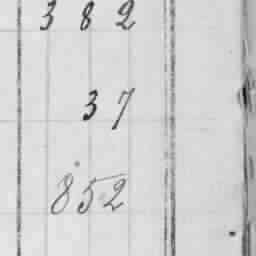 382
37
852